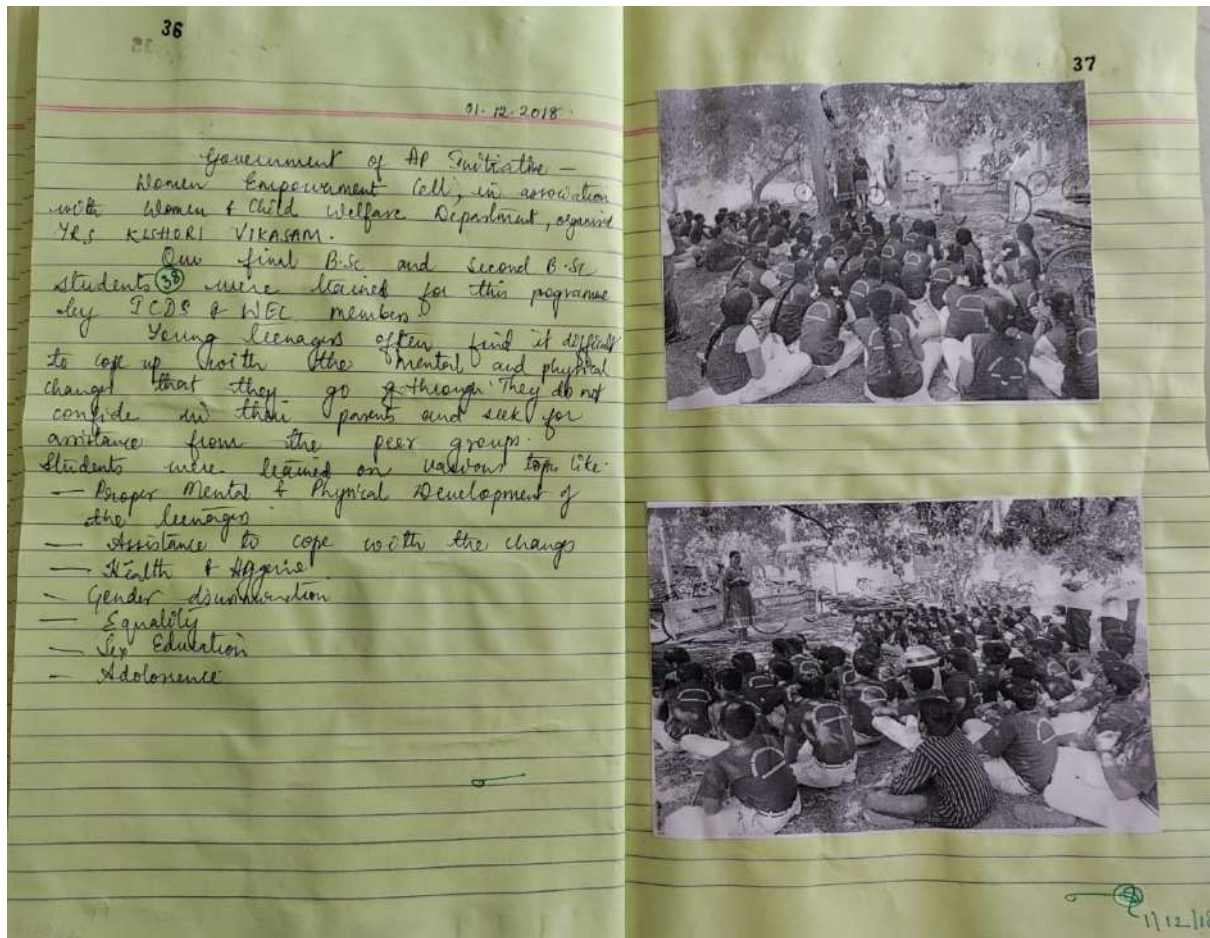 36
01.12.2018.
Government of AP Initiative —
Women Empowerment Cell, in association
with Women & Child Welfare Department, organised
YRS KISHORI VIKASAM.
Our final B.Sc and Second B.Sc
students (38) were trained for this programme
by ICDS & WEC members.
Young teenagers often find it difficult
to cope up with the mental and physical
changes that they go through. They do not
confide in their parents and seek for
assistance from the peer groups.
Students were trained on various topics like
— Proper Mental & Physical Development of
the teenagers
— Assistance to cope with the changs
— Health & Hygeine
— Gender discrimination
— Equality
— Sex Education
— Adolosience
37
1/12/18